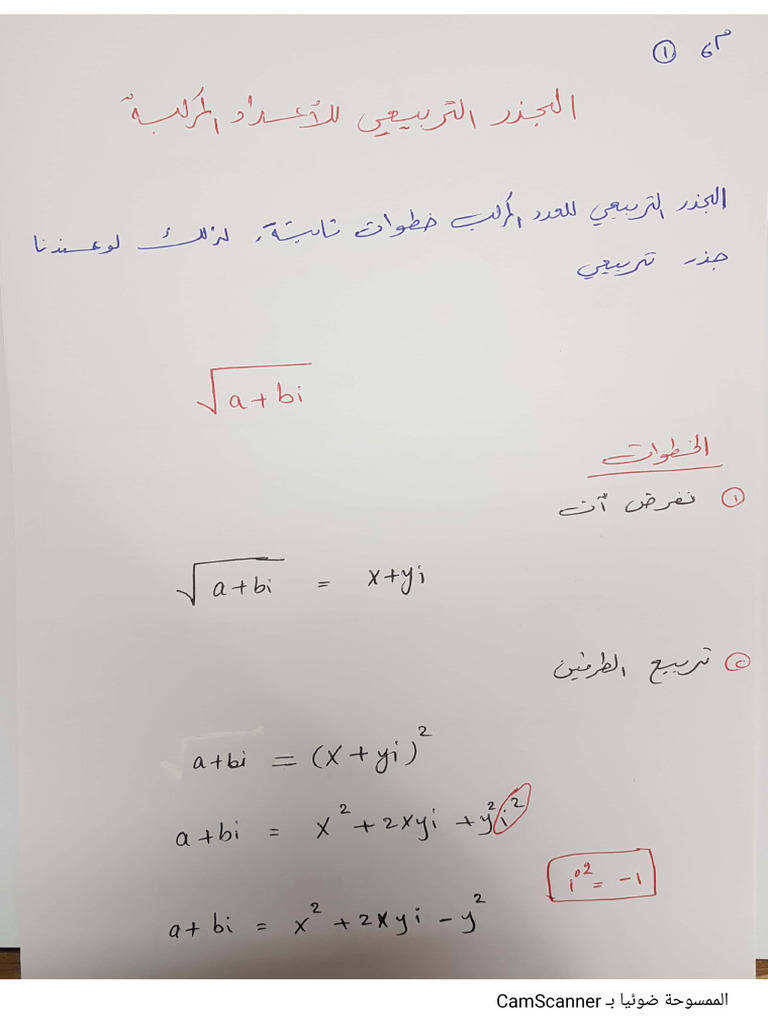 م6 ①
الجذر التربيعي للأعداد المركبة
الجذر التربيعي للعدد المركب خطوات ثابتة، لذلك لو عندنا
جذر تربيعي
√(a+bi)
الخطوات
① نفرض أن
√(a+bi) = x+yi
② تربيع الطرفين
a+bi = (x+yi)²
a+bi = x²+2xyi+y²i²
i² = -1
a+bi = x²+2xyi-y²
الممسوحة ضوئيا بـ CamScanner